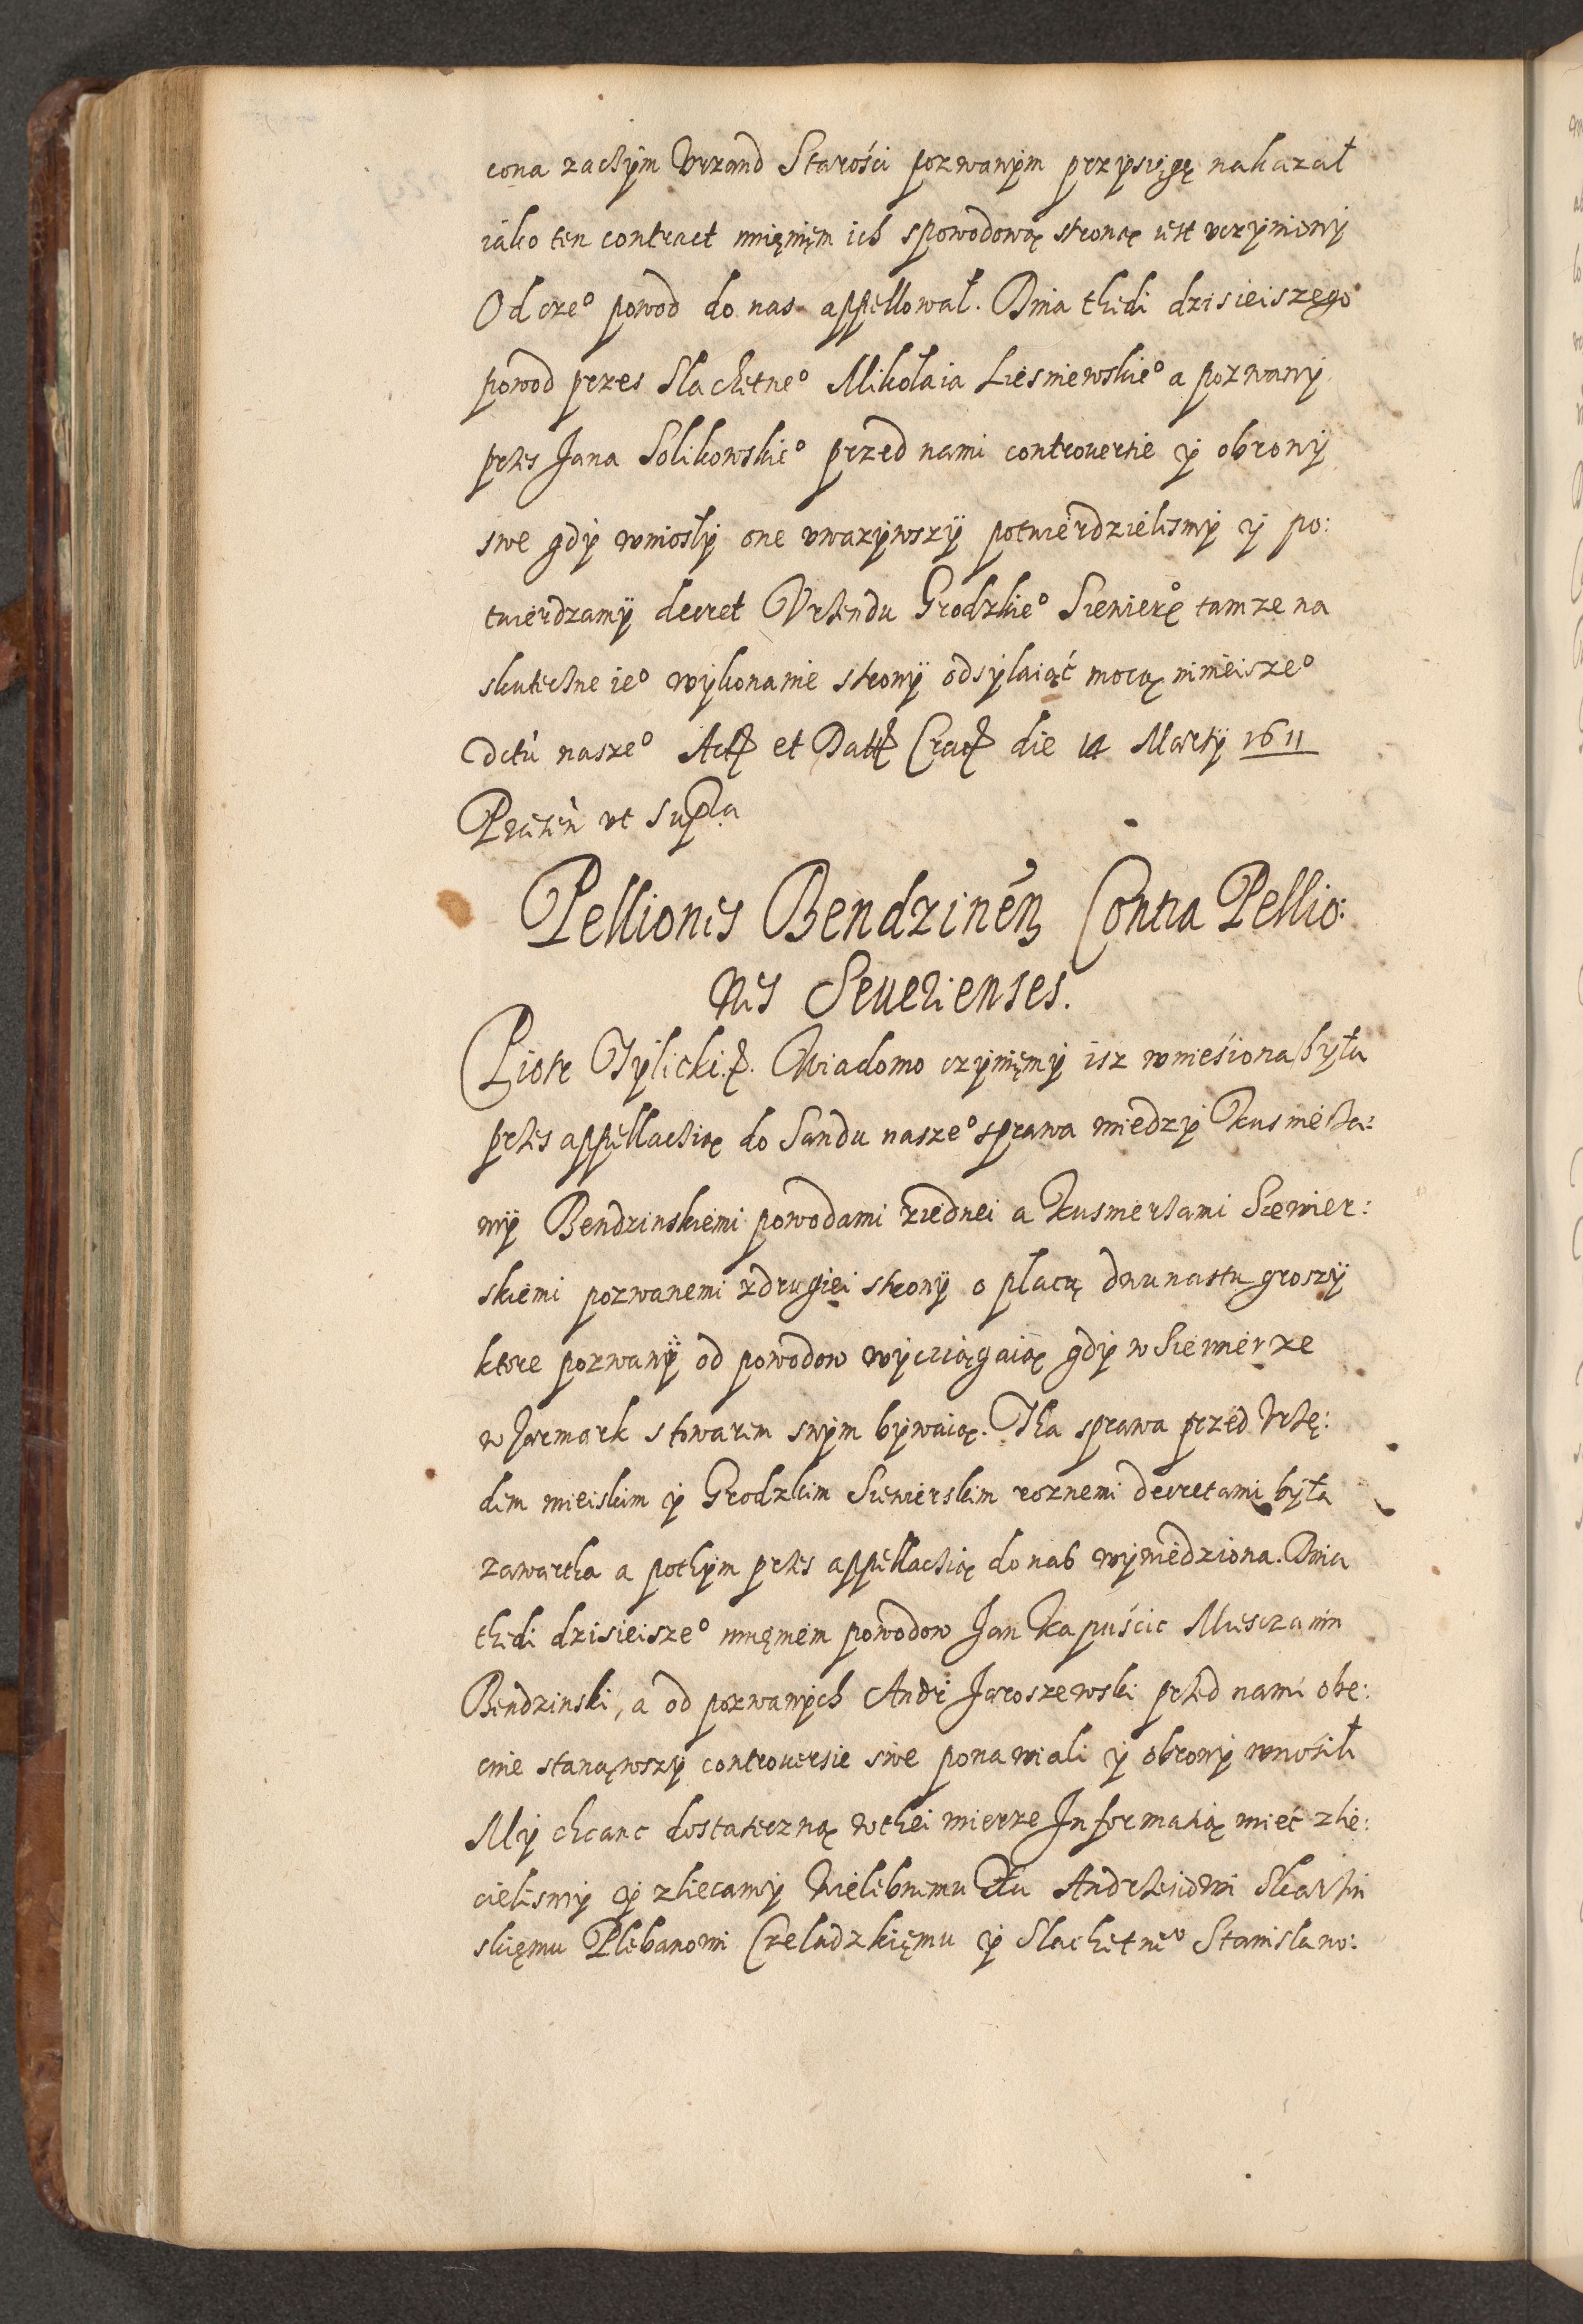 cona zactym Vrzand Starości pozwanym przysięgę nakazał
iako ten contract mięniem ich spowodową stroną iest vczyniony
Od cze° powod do nas appellował. Dnia thedi dzisieiszego
powod przes Slachetne° Mikołaia Liesniewskie° a pozwany
przes Jana Solikowskie° przed nami controuersie ÿ obrony
swe gdÿ wniosłÿ one vwazÿwszÿ potwierdzielismÿ ÿ po:
twierdzamÿ decret Vrzendu Grodzkie° Siewier° tamze na
skuteczne ie° wÿkonanie stronÿ odsÿlaiąć mocą ninieisze°
dctu nasze° Act et Datt Crac die 14 Martÿ 1611
Præsen vt supra
Pelliones Bendzinen Contra Pellio:
nes Seuerienses.
Piotr Tÿlicki. Wiadomo czÿnięmÿ isz wniesiona była
przes appellacią do Sandu nasze° sprawa miedzÿ Kusmierza:
mÿ Bendzinskiemi powodami ziednei a Kusmierzami Siewier:
skiemi pozwanemi zdrugiei stronÿ o płacę dwunastu groszÿ
ktore pozwanÿ od powodow wÿcziągaią gdÿ w Siewierze
w Jarmark stowarem swÿm bÿwaią. Tha sprawa przed Vrzę:
dem mieiskim ÿ Grodzkim Siewierskim roznemi decretami bÿła
zawartha a pothÿm przes appellacią do nas wÿwiedziona. Dnia
thedi dzisieisze° imięniem powodow Jan Kapuścic Miesczanin
Bendzinski, a od pozwanÿch Andr Jaroszewski przed nami obe:
cnie stanąwszÿ controuersie swe ponawiali ÿ obronÿ wnosili
Mÿ chcanc dostateczną wthei mierze Informatią mieć zlie:
cielismÿ ÿ zliecamÿ Wielebnemu Xu Andrzeiowi Skarzin
skięmu Plebanowi Czeladzkięmu ÿ Slachetne° Stanislawo: